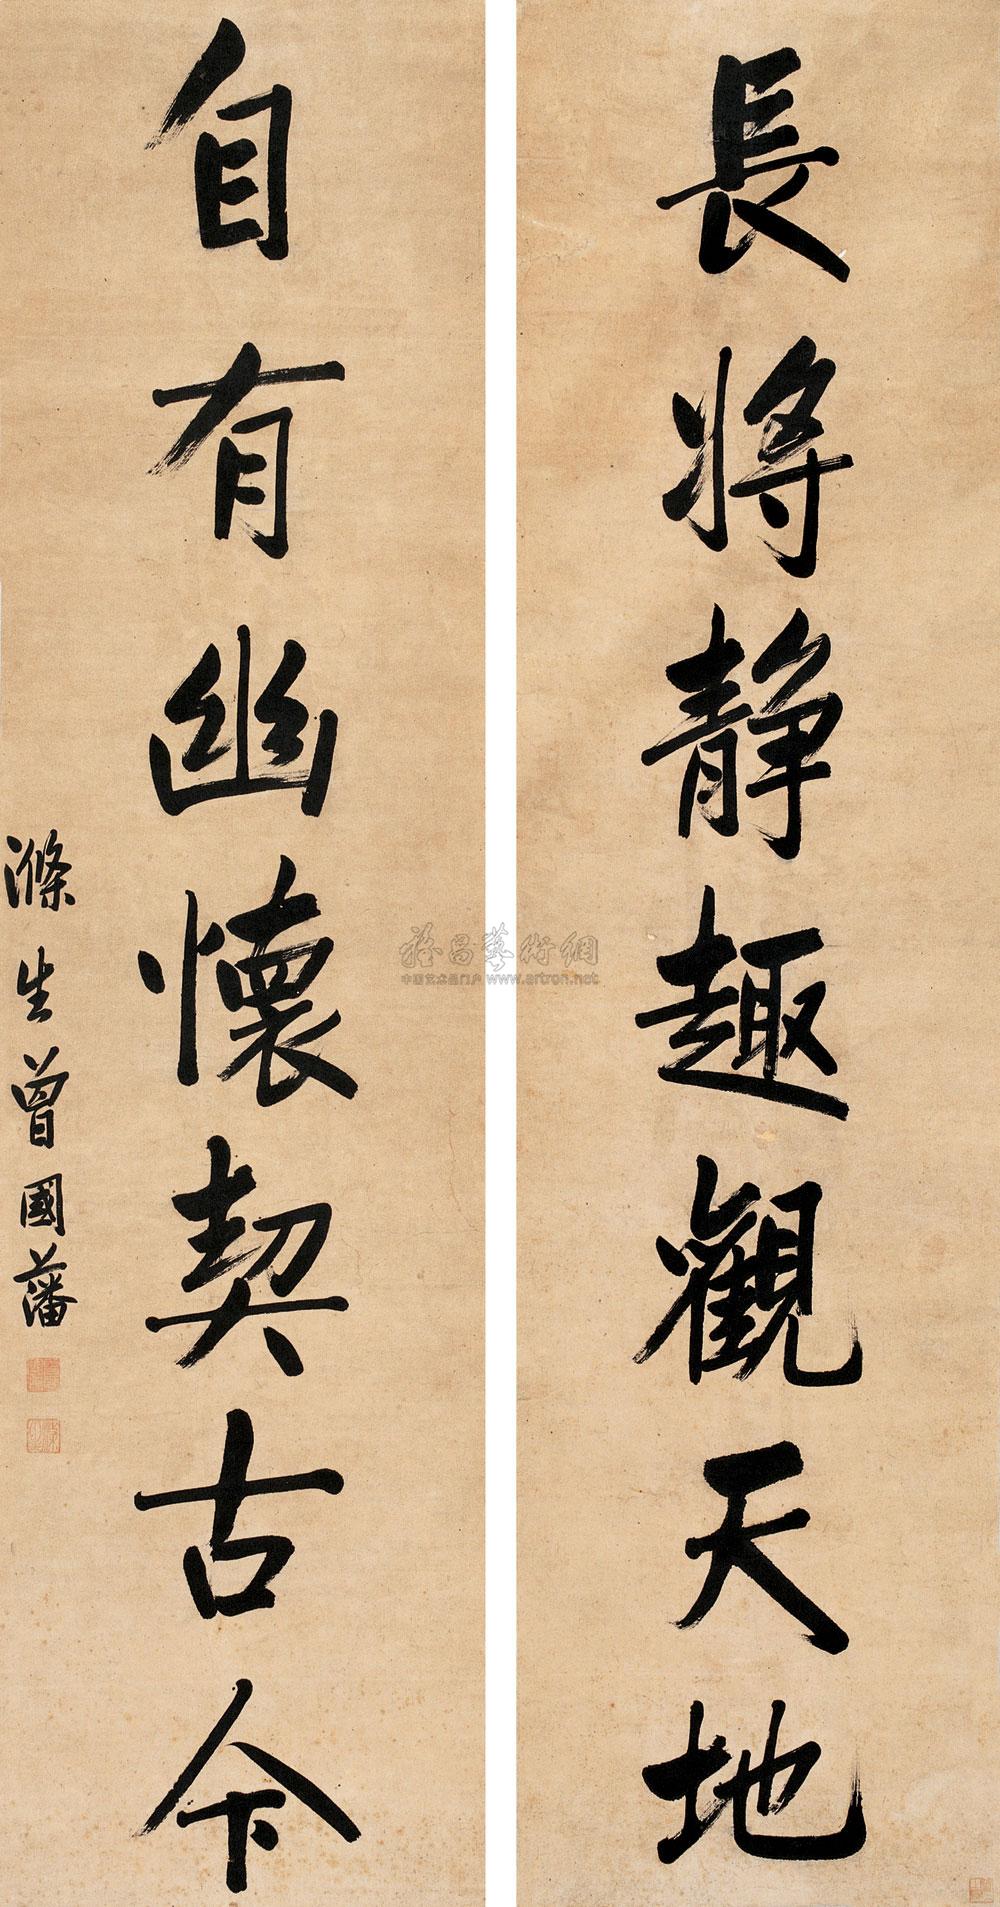 長將静趣觀天地
自有幽懷契古今
滌生曾國藩
雅昌藝術網
中国艺术品门户 www.artron.net